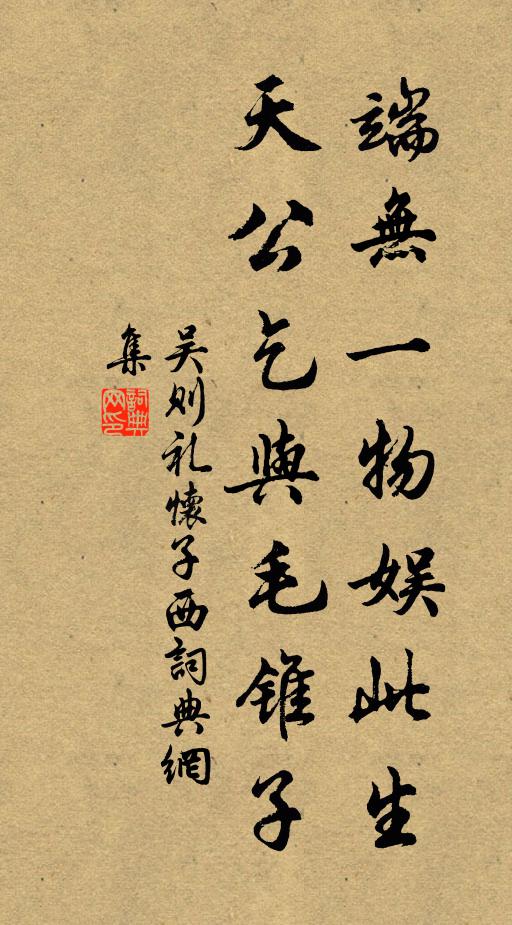 端無一物娛此生
天公乞與毛錐子
吳則礼懷子西詞典網
集
詞典
网印